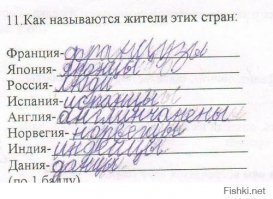 11.Как называются жители этих стран:
Франция-французы
Япония-японцы
Россия-люди
Испания-испанцы
Англия-англинчанены
Норвегия-норвегцы
Индия-индейцы
Дания-данцы
(по 1 баллу)
Fishki.net